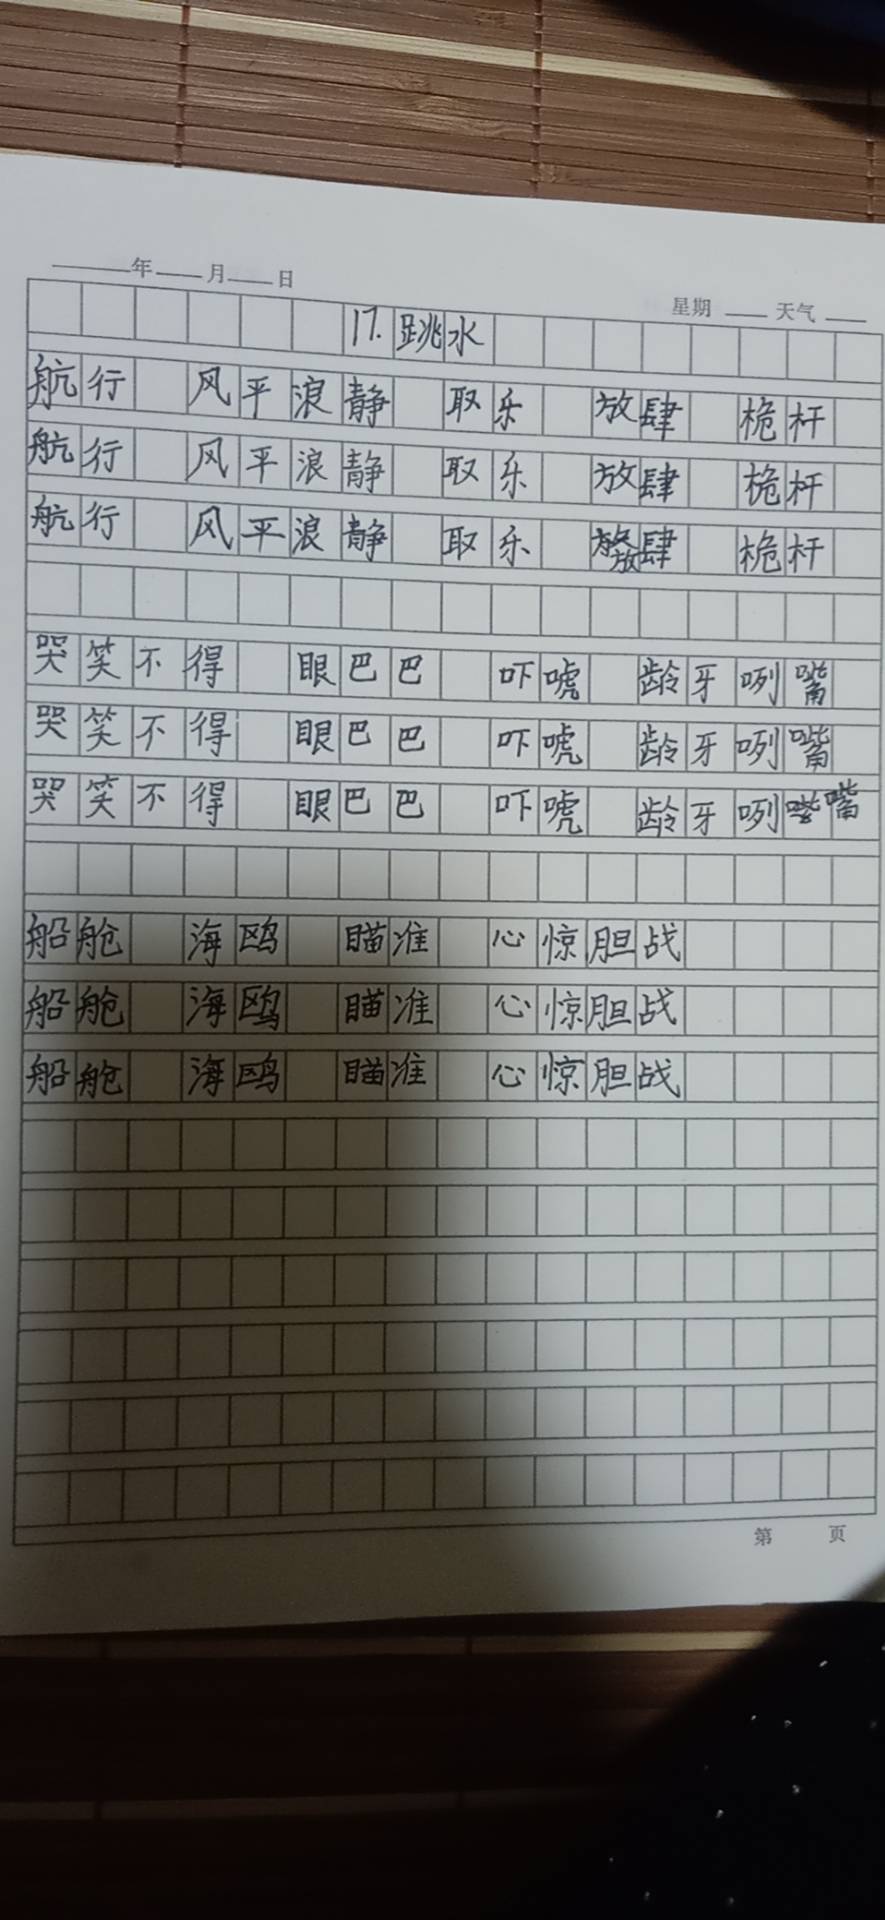 年 月 日
星期 天气
17. 跳水
航行 风平浪静 取乐 放肆 桅杆
航行 风平浪静 取乐 放肆 桅杆
航行 风平浪静 取乐 放肆 桅杆
哭笑不得 眼巴巴 吓唬 龇牙咧嘴
哭笑不得 眼巴巴 吓唬 龇牙咧嘴
哭笑不得 眼巴巴 吓唬 龇牙咧嘴
船舱 海鸥 瞄准 心惊胆战
船舱 海鸥 瞄准 心惊胆战
船舱 海鸥 瞄准 心惊胆战
第 页